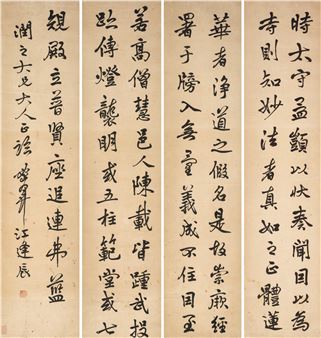 時太守孟顗以狀奏聞因以為
寺則知妙法者真如之正體蓮
華者淨道之假名是故崇厥經
署于牓入無量義成不住因至
善高僧慧邑人陳載皆踵武投
趾傳燈襲明或五柱範堂或七
規殿立普賢座追連弗藍
潤之大兄大人正臨 江逢辰